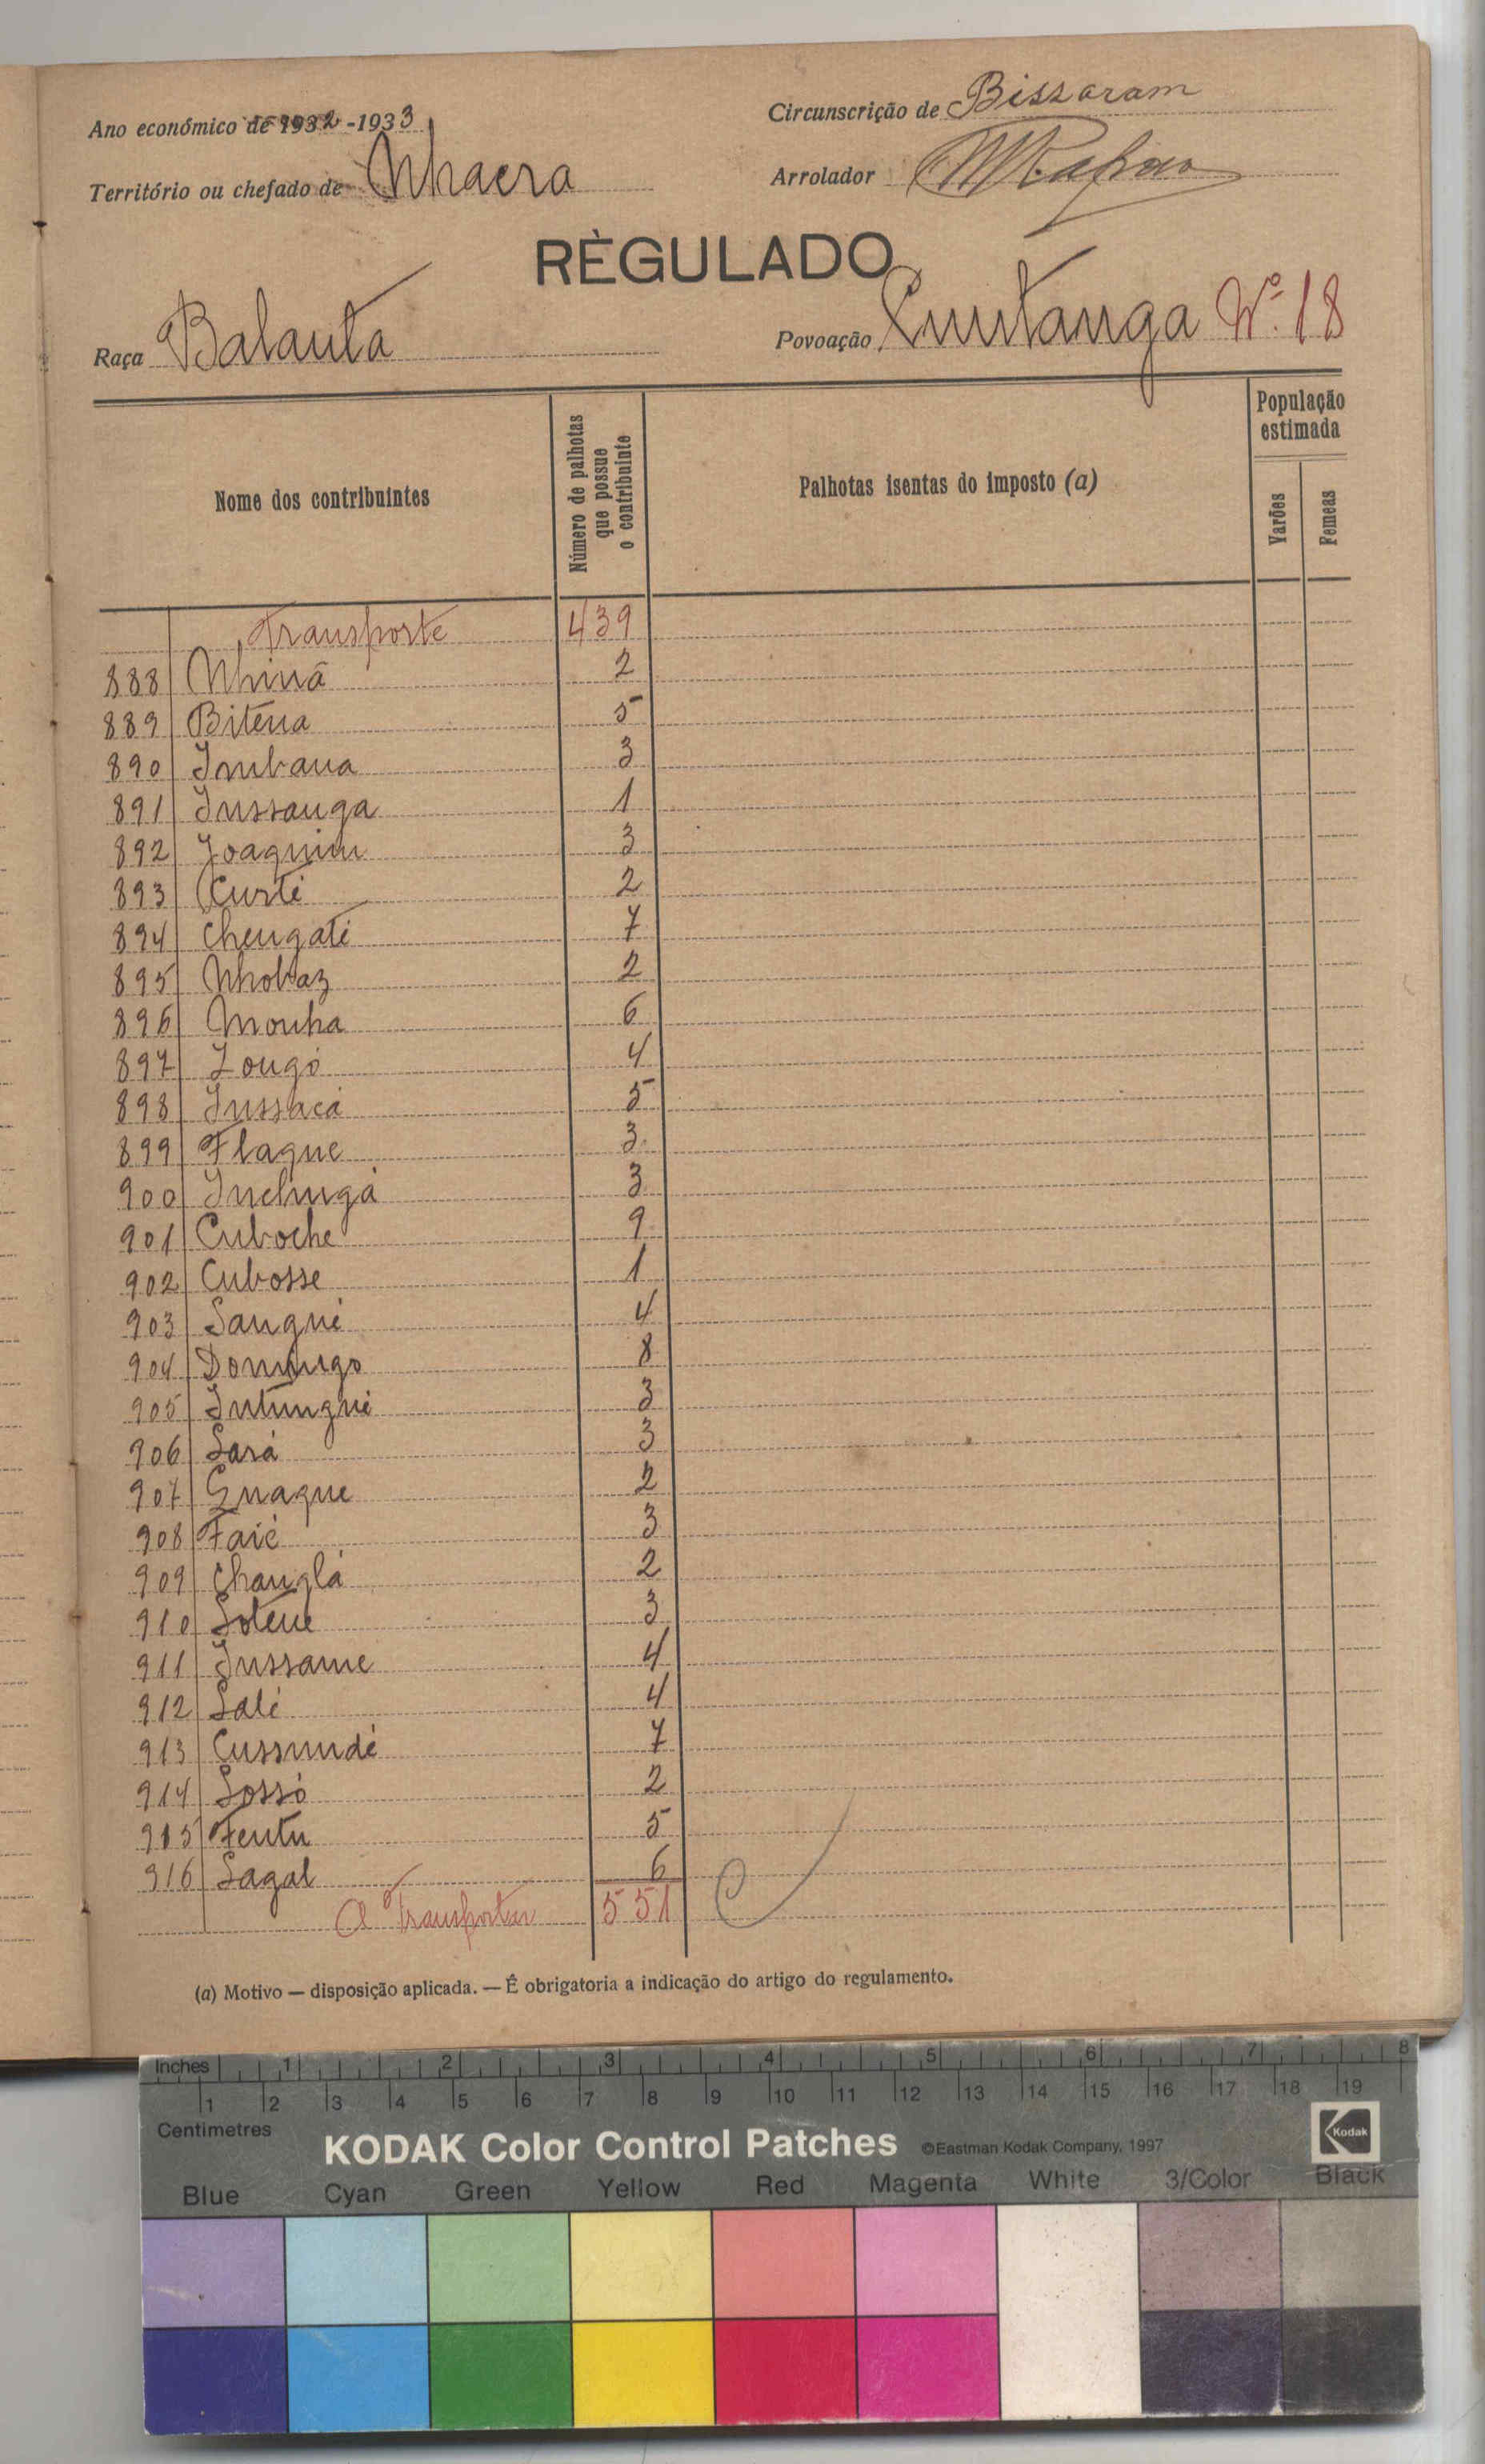 Ano económico de 1932-1933
Circunscrição de Bissoram
Território ou chefado de Nhaera
Arrolador
RÈGULADO
Raça Balanta
Povoação Quintanga Nº 18
Nome dos contribuintes
Número de palhotas que possue o contribuinte
Palhotas isentas do imposto (a)
População estimada
Varões
Femeas
Transporte 439
888 Nhinã 2
889 Bitena 5
890 Imbana 3
891 Inssanga 1
892 Joaquim 3
893 Curté 2
894 Chengaté 7
895 Nhobaz 2
896 Monha 6
897 Longó 4
898 Inssacá 5
899 Flaque 3
900 Inchugá 3
901 Cuboche 9
902 Cubosse 1
903 Sangué 4
904 Domingo 8
905 Intungué 3
906 Sará 3
907 Guaque 2
908 Faié 3
909 Changlá 2
910 Sotene 3
911 Inssame 4
912 Salé 4
913 Cussundé 7
914 Sossó 2
915 Fentu 5
916 Sagal 6
A Transportar 551
(a) Motivo — disposição aplicada. — É obrigatoria a indicação do artigo do regulamento.
Inches 1 2 3 4 5 6 7 8
1 2 3 4 5 6 7 8 9 10 11 12 13 14 15 16 17 18 19
Centimetres
KODAK Color Control Patches ©Eastman Kodak Company, 1997 Kodak
Blue Cyan Green Yellow Red Magenta White 3/Color Black